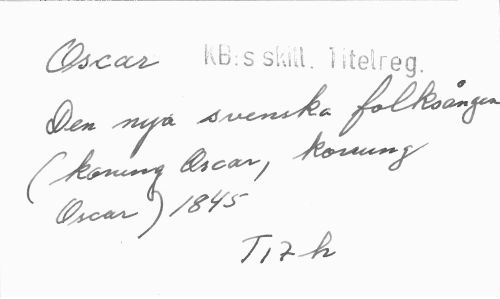 Oscar KB:s skill. Titelreg.
Den nya svenska folksången
(konung Oscar, konung
Oscar) 1845
T17h